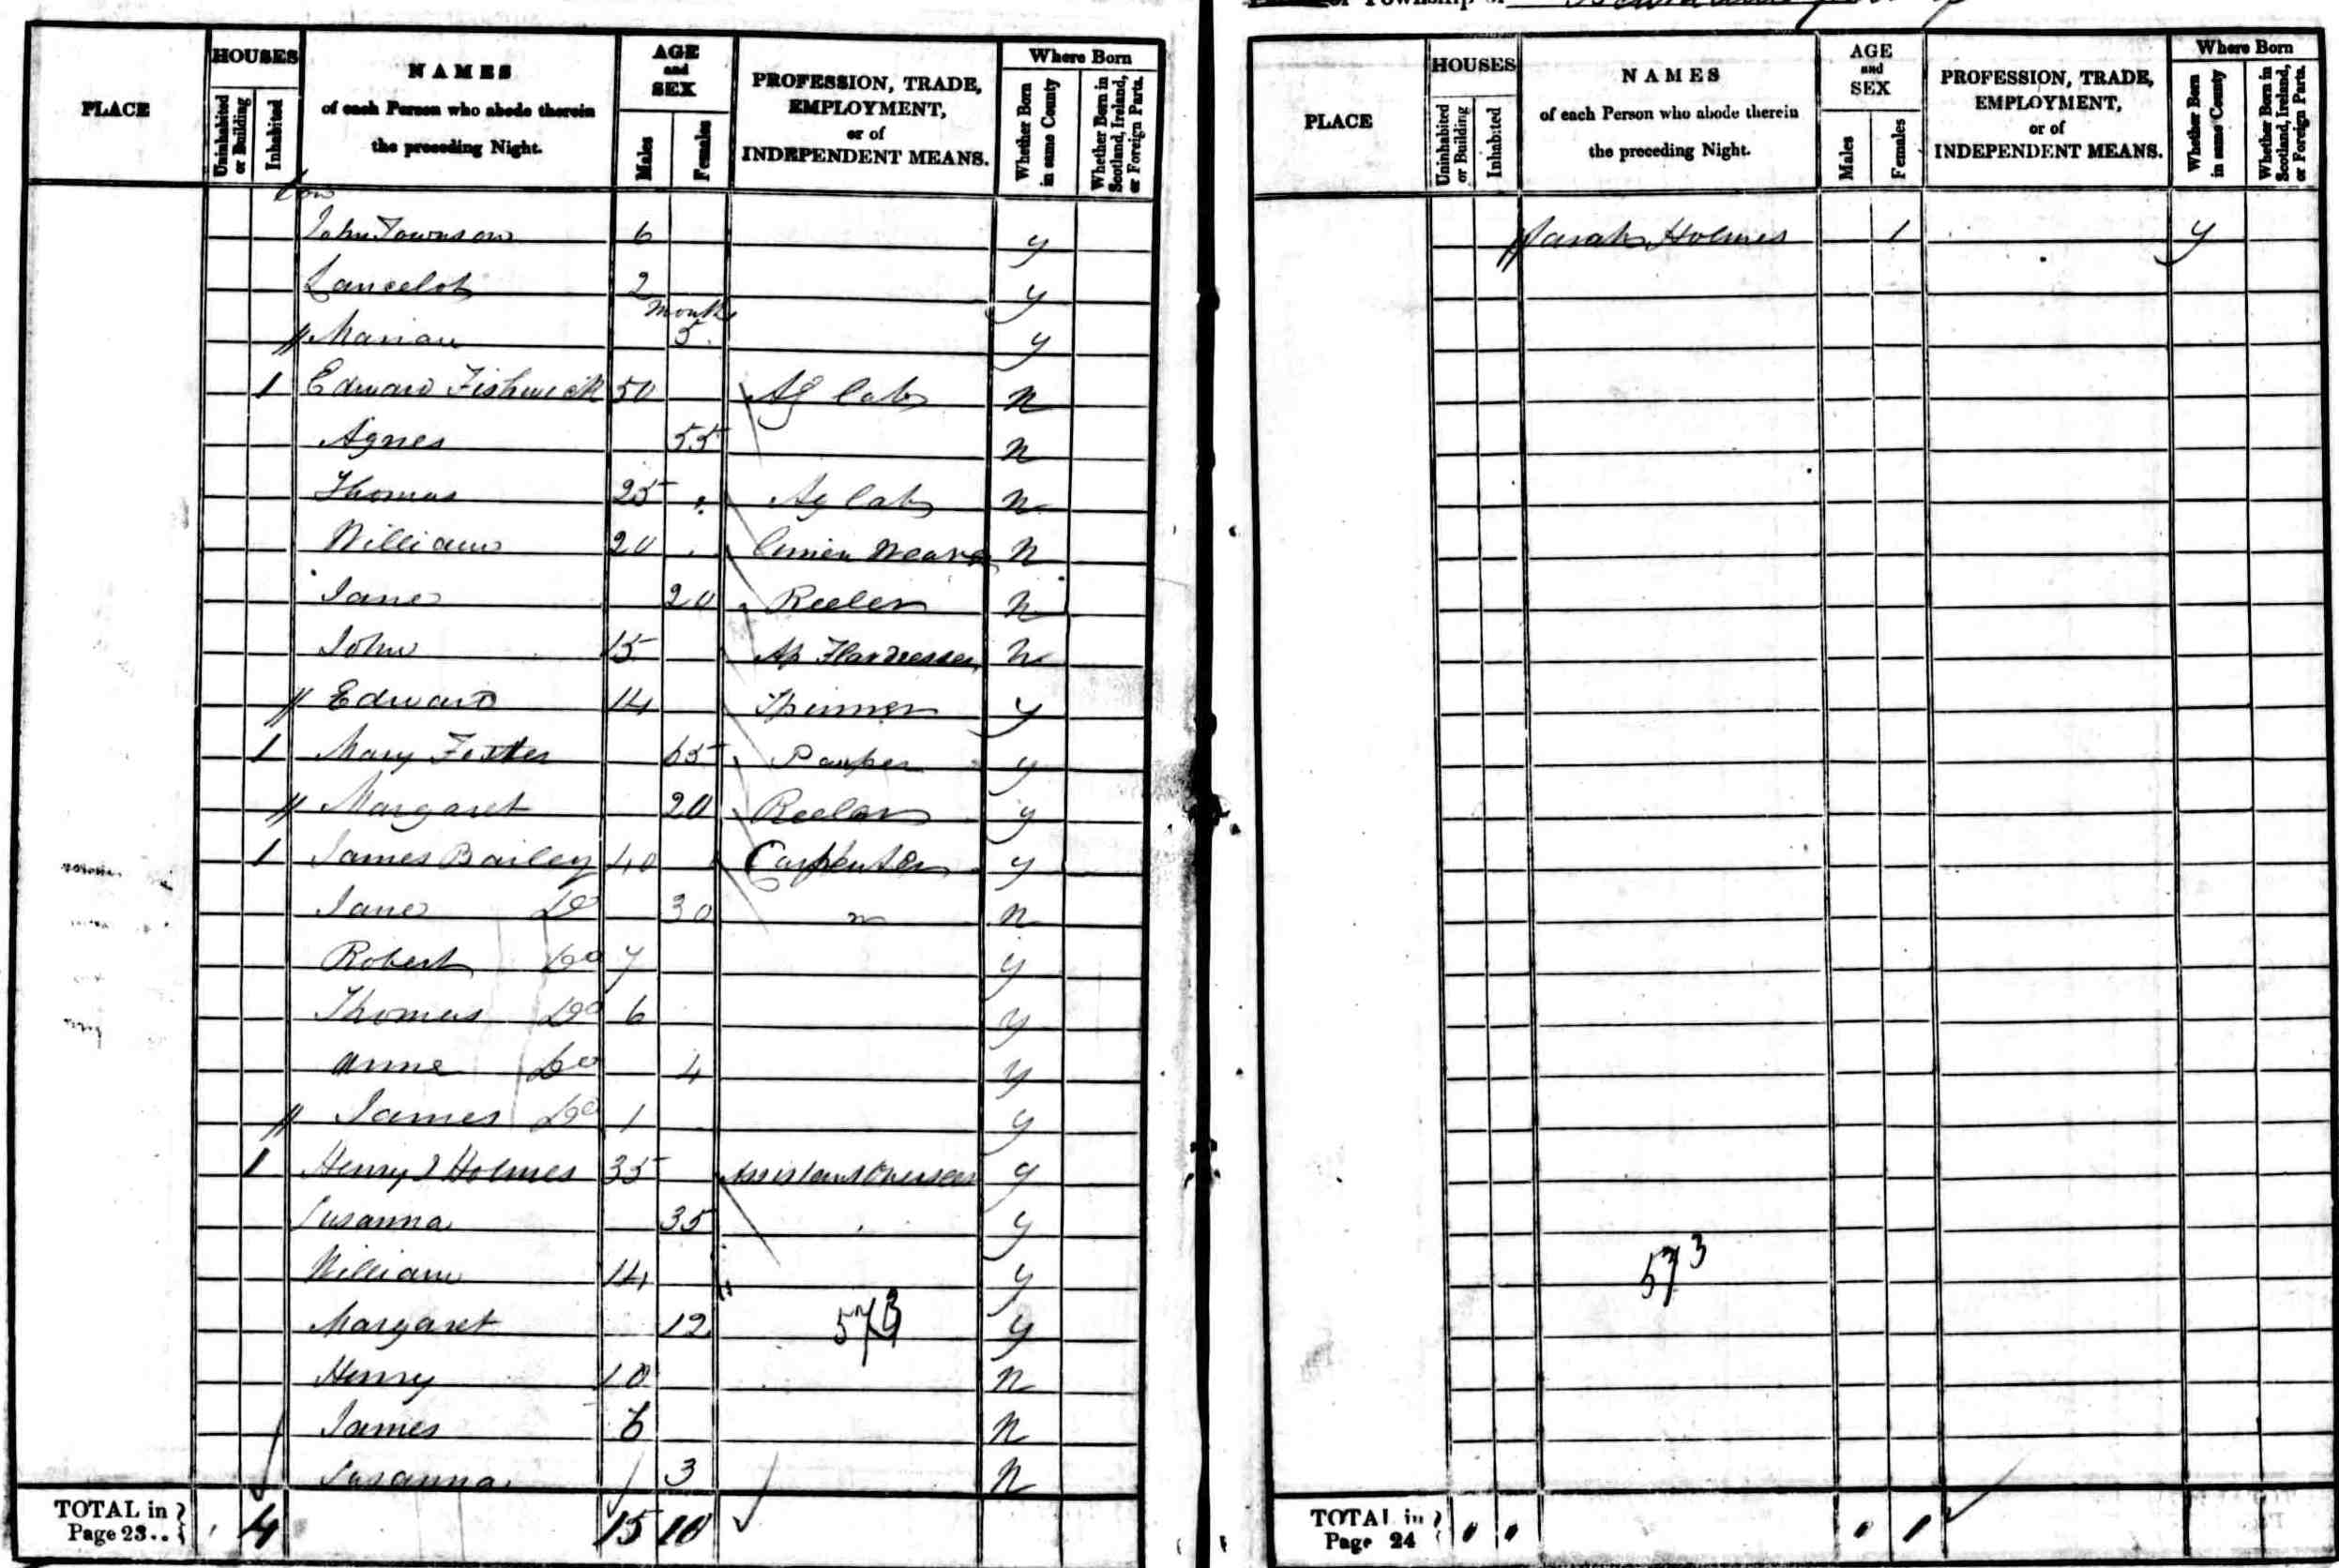 or Township of
PLACE
HOUSES
Uninhabited or Building
Inhabited
NAMES
of each Person who abode therein
the preceding Night.
AGE and SEX
Males
Females
PROFESSION, TRADE, EMPLOYMENT,
or of
INDEPENDENT MEANS.
Where Born
Whether Born in same County
Whether Born in Scotland, Ireland, or Foreign Parts.
John Townson 6 y
Lancelot 2 y
months
// Marian 5 y
1 Edward Fishwick 50 Ag lab n
Agnes 55 n
Thomas 25 Ag lab n
William 20 Linnen Weaver n
Jane 20 Reeler n
John 15 Ap Flaxdresser n
// Edward 14 Spinner y
1 Mary Foster 65 Pauper y
// Margaret 20 Reeler y
1 James Bailey 40 Carpenter y
Jane Do 30 n
Robert Do 7 y
Thomas Do 6 y
Anne Do 4 y
// James Do 1 y
1 Henry J Holmes 35 Assistant Overseer y
Susanna 35 y
William 14 y
Margaret 12 573 y
Henry 10 n
James 6 n
Susanna 3 n
TOTAL in Page 23.. 4 15 10
PLACE
HOUSES
Uninhabited or Building
Inhabited
NAMES
of each Person who abode therein
the preceding Night.
AGE and SEX
Males
Females
PROFESSION, TRADE, EMPLOYMENT,
or of
INDEPENDENT MEANS.
Where Born
Whether Born in same County
Whether Born in Scotland, Ireland, or Foreign Parts.
// Sarah Holmes 1 y
573
TOTAL in Page 24 1